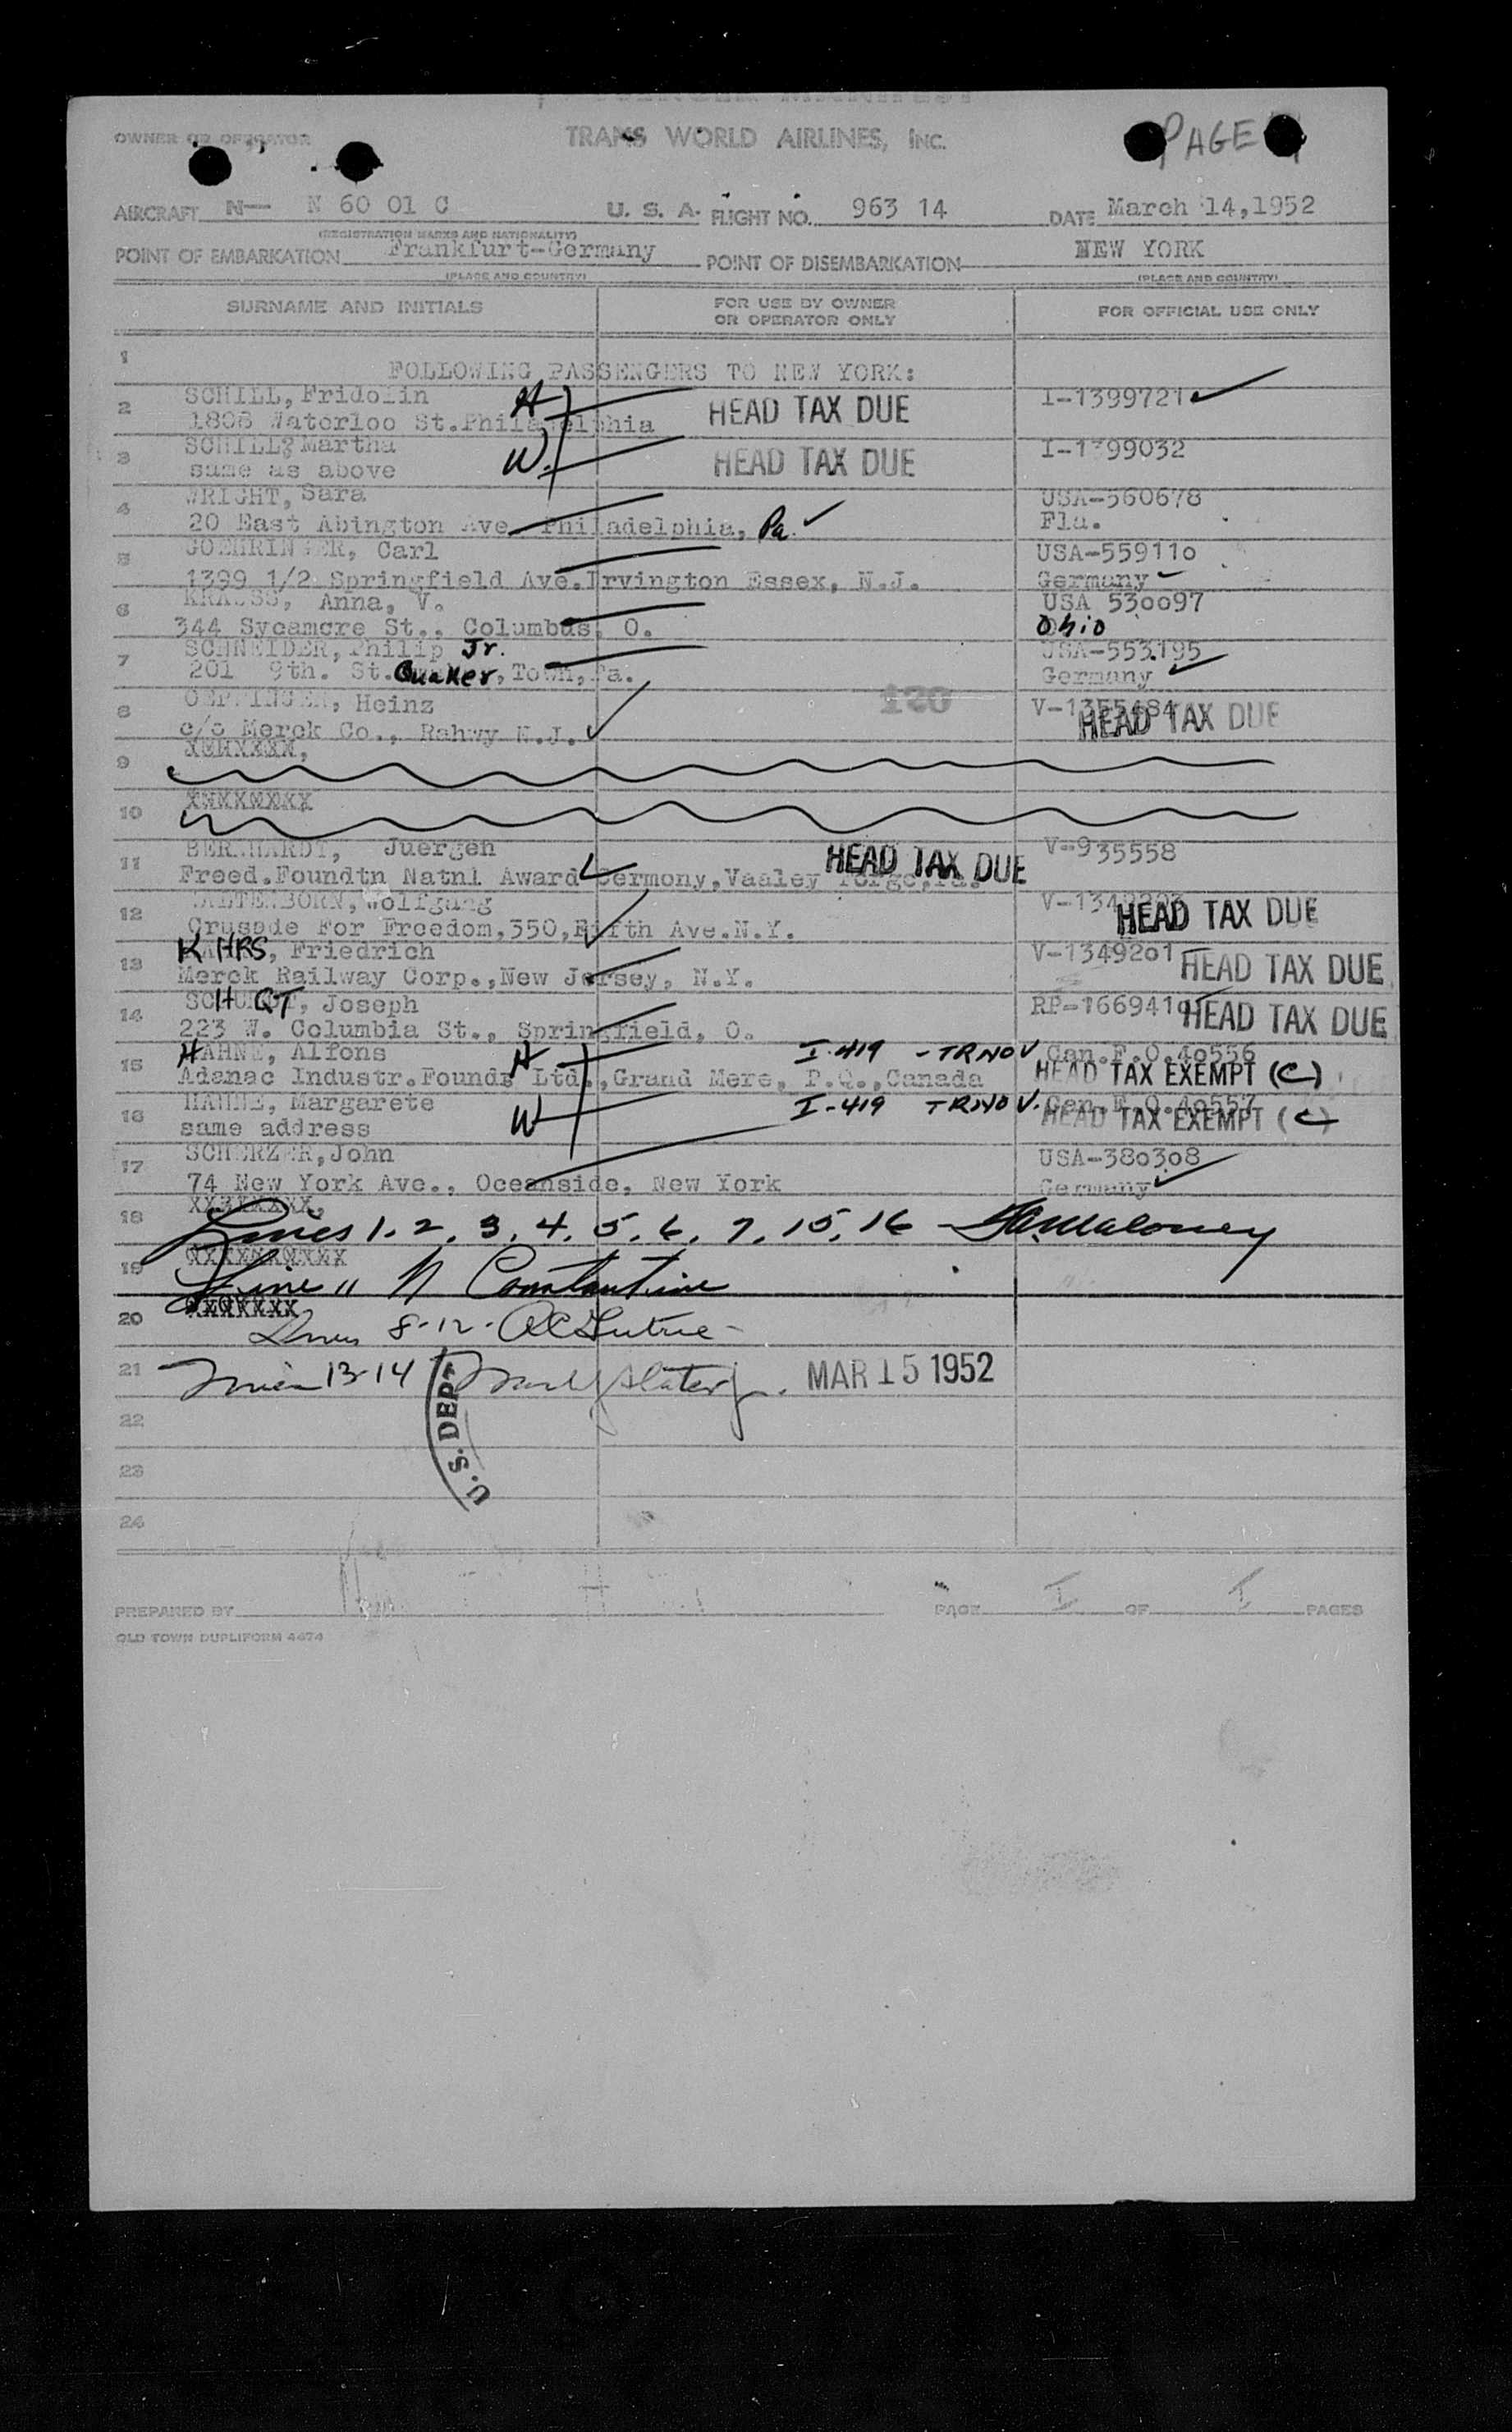 OWNER OR OPERATOR TRANS WORLD AIRLINES, INC. PAGE
AIRCRAFT N— N 60 01 C U. S. A. FLIGHT NO. 963 14 DATE March 14,1952
(REGISTRATION MARKS AND NATIONALITY)
POINT OF EMBARKATION Frankfurt-Germany POINT OF DISEMBARKATION NEW YORK
(PLACE AND COUNTRY) (PLACE AND COUNTRY)
SURNAME AND INITIALS FOR USE BY OWNER OR OPERATOR ONLY FOR OFFICIAL USE ONLY
1 FOLLOWING PASSENGERS TO NEW YORK:
2 SCHILL, Fridolin H HEAD TAX DUE I-1399721
1808 Waterloo St.Philadelphia
3 SCHILL, Martha W. HEAD TAX DUE I-1399032
same as above
4 WRIGHT, Sara USA-560678
20 East Abington Ave. Philadelphia, Pa. Fla.
5 GOEHRINGER, Carl USA-559110
1399 1/2 Springfield Ave.Irvington Essex, N.J. Germany
6 KRAUSS, Anna, V. USA 530097
344 Sycamore St., Columbus, O. Ohio
7 SCHNEIDER, Philip Jr. USA-553195
201 9th. St. Quaker, Town, Pa. Germany
8 Heinz 120 V-1355484
c/o Merck Co., Rahwy N.J. HEAD TAX DUE
9
10
11 BERNHARDT, Juergen HEAD TAX DUE V-935558
Freed.Foundtn Natnl Award Germony, Vaaley Forge,Pa.
12 Wolfgang HEAD TAX DUE
Crusade For Freedom,350,Fifth Ave.N.Y.
13 KAHRS, Friedrich V-1349201 HEAD TAX DUE
Merck Railway Corp.,New Jersey, N.Y.
14 Joseph RP-1669410 HEAD TAX DUE
223 W. Columbia St., Springfield, O.
15 HAHNE, Alfons H I-419 - TRNOV Can.F.O.40556
Adanac Industr.Foundr Ltd.,Grand Mere, P.Q.,Canada HEAD TAX EXEMPT (C)
16 HAHNE, Margarete W I-419 TRNOV. Can.F.O.40557
same address HEAD TAX EXEMPT (C)
17 SCHERZER, John USA-380308
74 New York Ave., Oceanside, New York Germany
18 Lines 1. 2, 3, 4, 5, 6, 7, 15, 16 - Maloney
19 Line 11 N Constantine
20 Lines 8-12-
21 Lines 13-14 MAR 15 1952
U.S. DEPT
22
23
24
PREPARED BY PAGE I OF I PAGES
OLD TOWN DUPLIFORM 4474